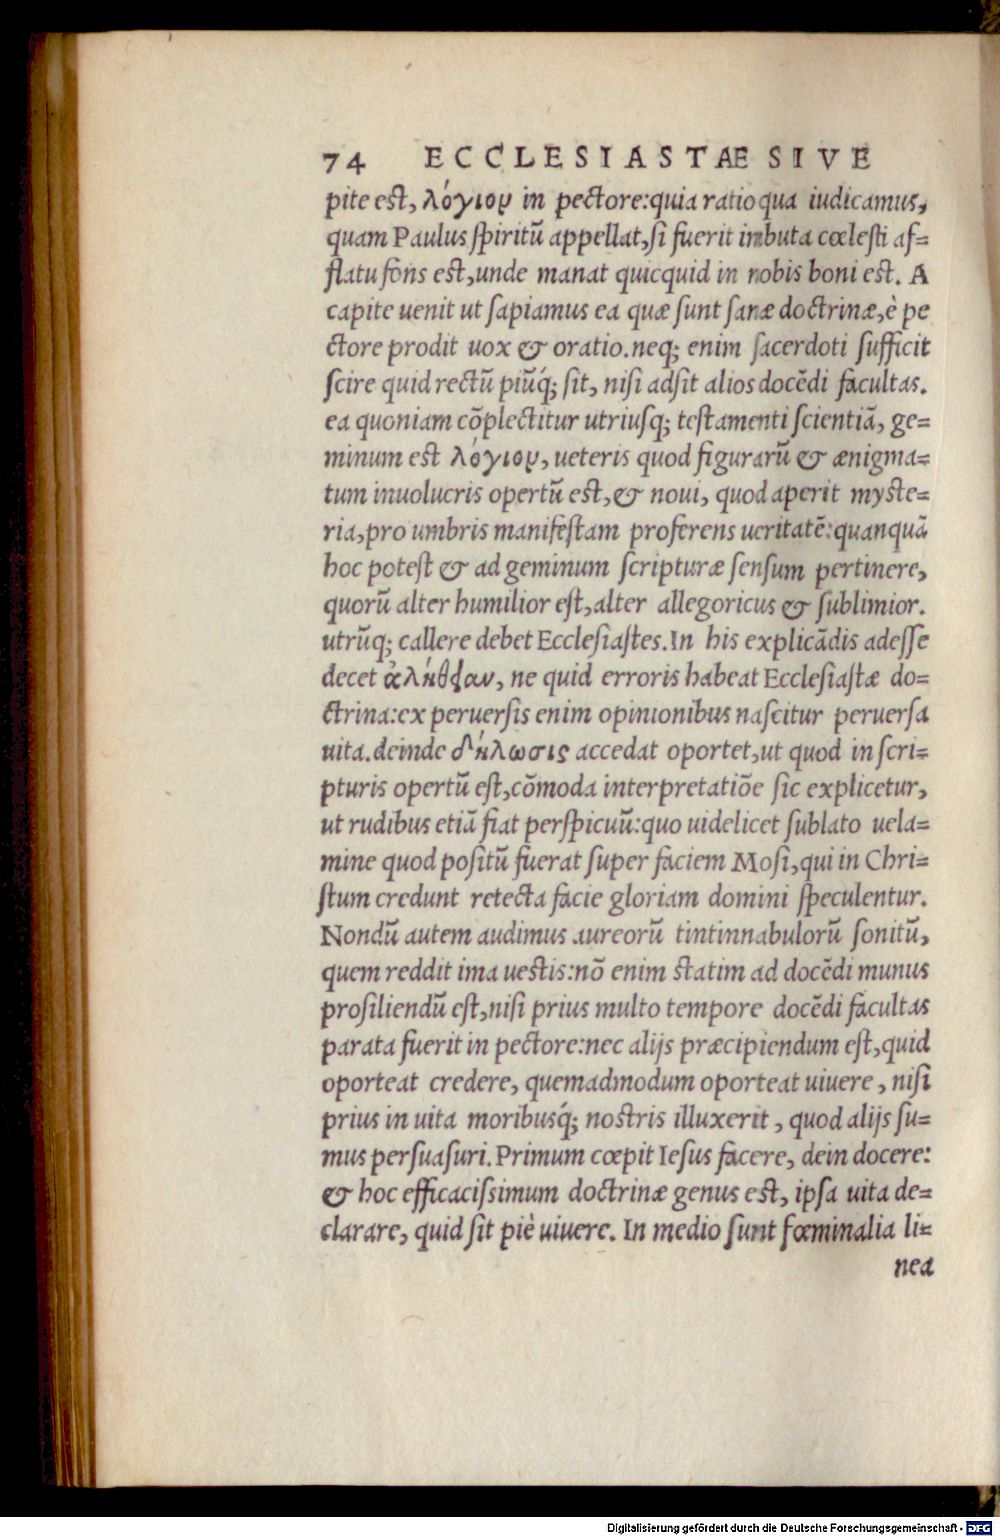 74 ECCLESIASTAE SIVE
pite est, λόγιον in pectore:quia ratio qua iudicamus,
quam Paulus spiritū appellat,si fuerit imbuta cœlesti af=
flatu fons est,unde manat quicquid in nobis boni est. A
capite uenit ut sapiamus ea quæ sunt sanæ doctrinæ,è pe
ctore prodit uox & oratio.neq; enim sacerdoti sufficit
scire quid rectū piūq́; sit, nisi adsit alios docēdi facultas.
ea quoniam cōplectitur utriusq; testamenti scientiā, ge=
minum est λόγιον, ueteris quod figurarū & ænigma=
tum inuolucris opertū est,& noui, quod aperit myste=
ria,pro umbris manifestam proferens ueritatē:quanquā
hoc potest & ad geminum scripturæ sensum pertinere,
quorū alter humilior est,alter allegoricus & sublimior.
utrūq; callere debet Ecclesiastes.In his explicādis adesse
decet ἀλήθειαν, ne quid erroris habeat Ecclesiastæ do=
ctrina:ex peruersis enim opinionibus nascitur peruersa
uita.deinde δήλωσις accedat oportet,ut quod in scri=
pturis opertū est,cōmoda interpretatiōe sic explicetur,
ut rudibus etiā fiat perspicuū:quo uidelicet sublato uela=
mine quod positū fuerat super faciem Mosi,qui in Chri=
stum credunt retecta facie gloriam domini speculentur.
Nondū autem audimus aureorū tintinnabulorū sonitū,
quem reddit ima uestis:nō enim statim ad docēdi munus
prosiliendū est,nisi prius multo tempore docēdi facultas
parata fuerit in pectore:nec alijs præcipiendum est,quid
oporteat credere, quemadmodum oporteat uiuere , nisi
prius in uita moribusq́; nostris illuxerit , quod alijs su=
mus persuasuri.Primum cœpit Iesus facere, dein docere:
& hoc efficacissimum doctrinæ genus est, ipsa uita de=
clarare, quid sit piè uiuere. In medio sunt fœminalia li=
nea
Digitalisierung gefördert durch die Deutsche Forschungsgemeinschaft - DFG